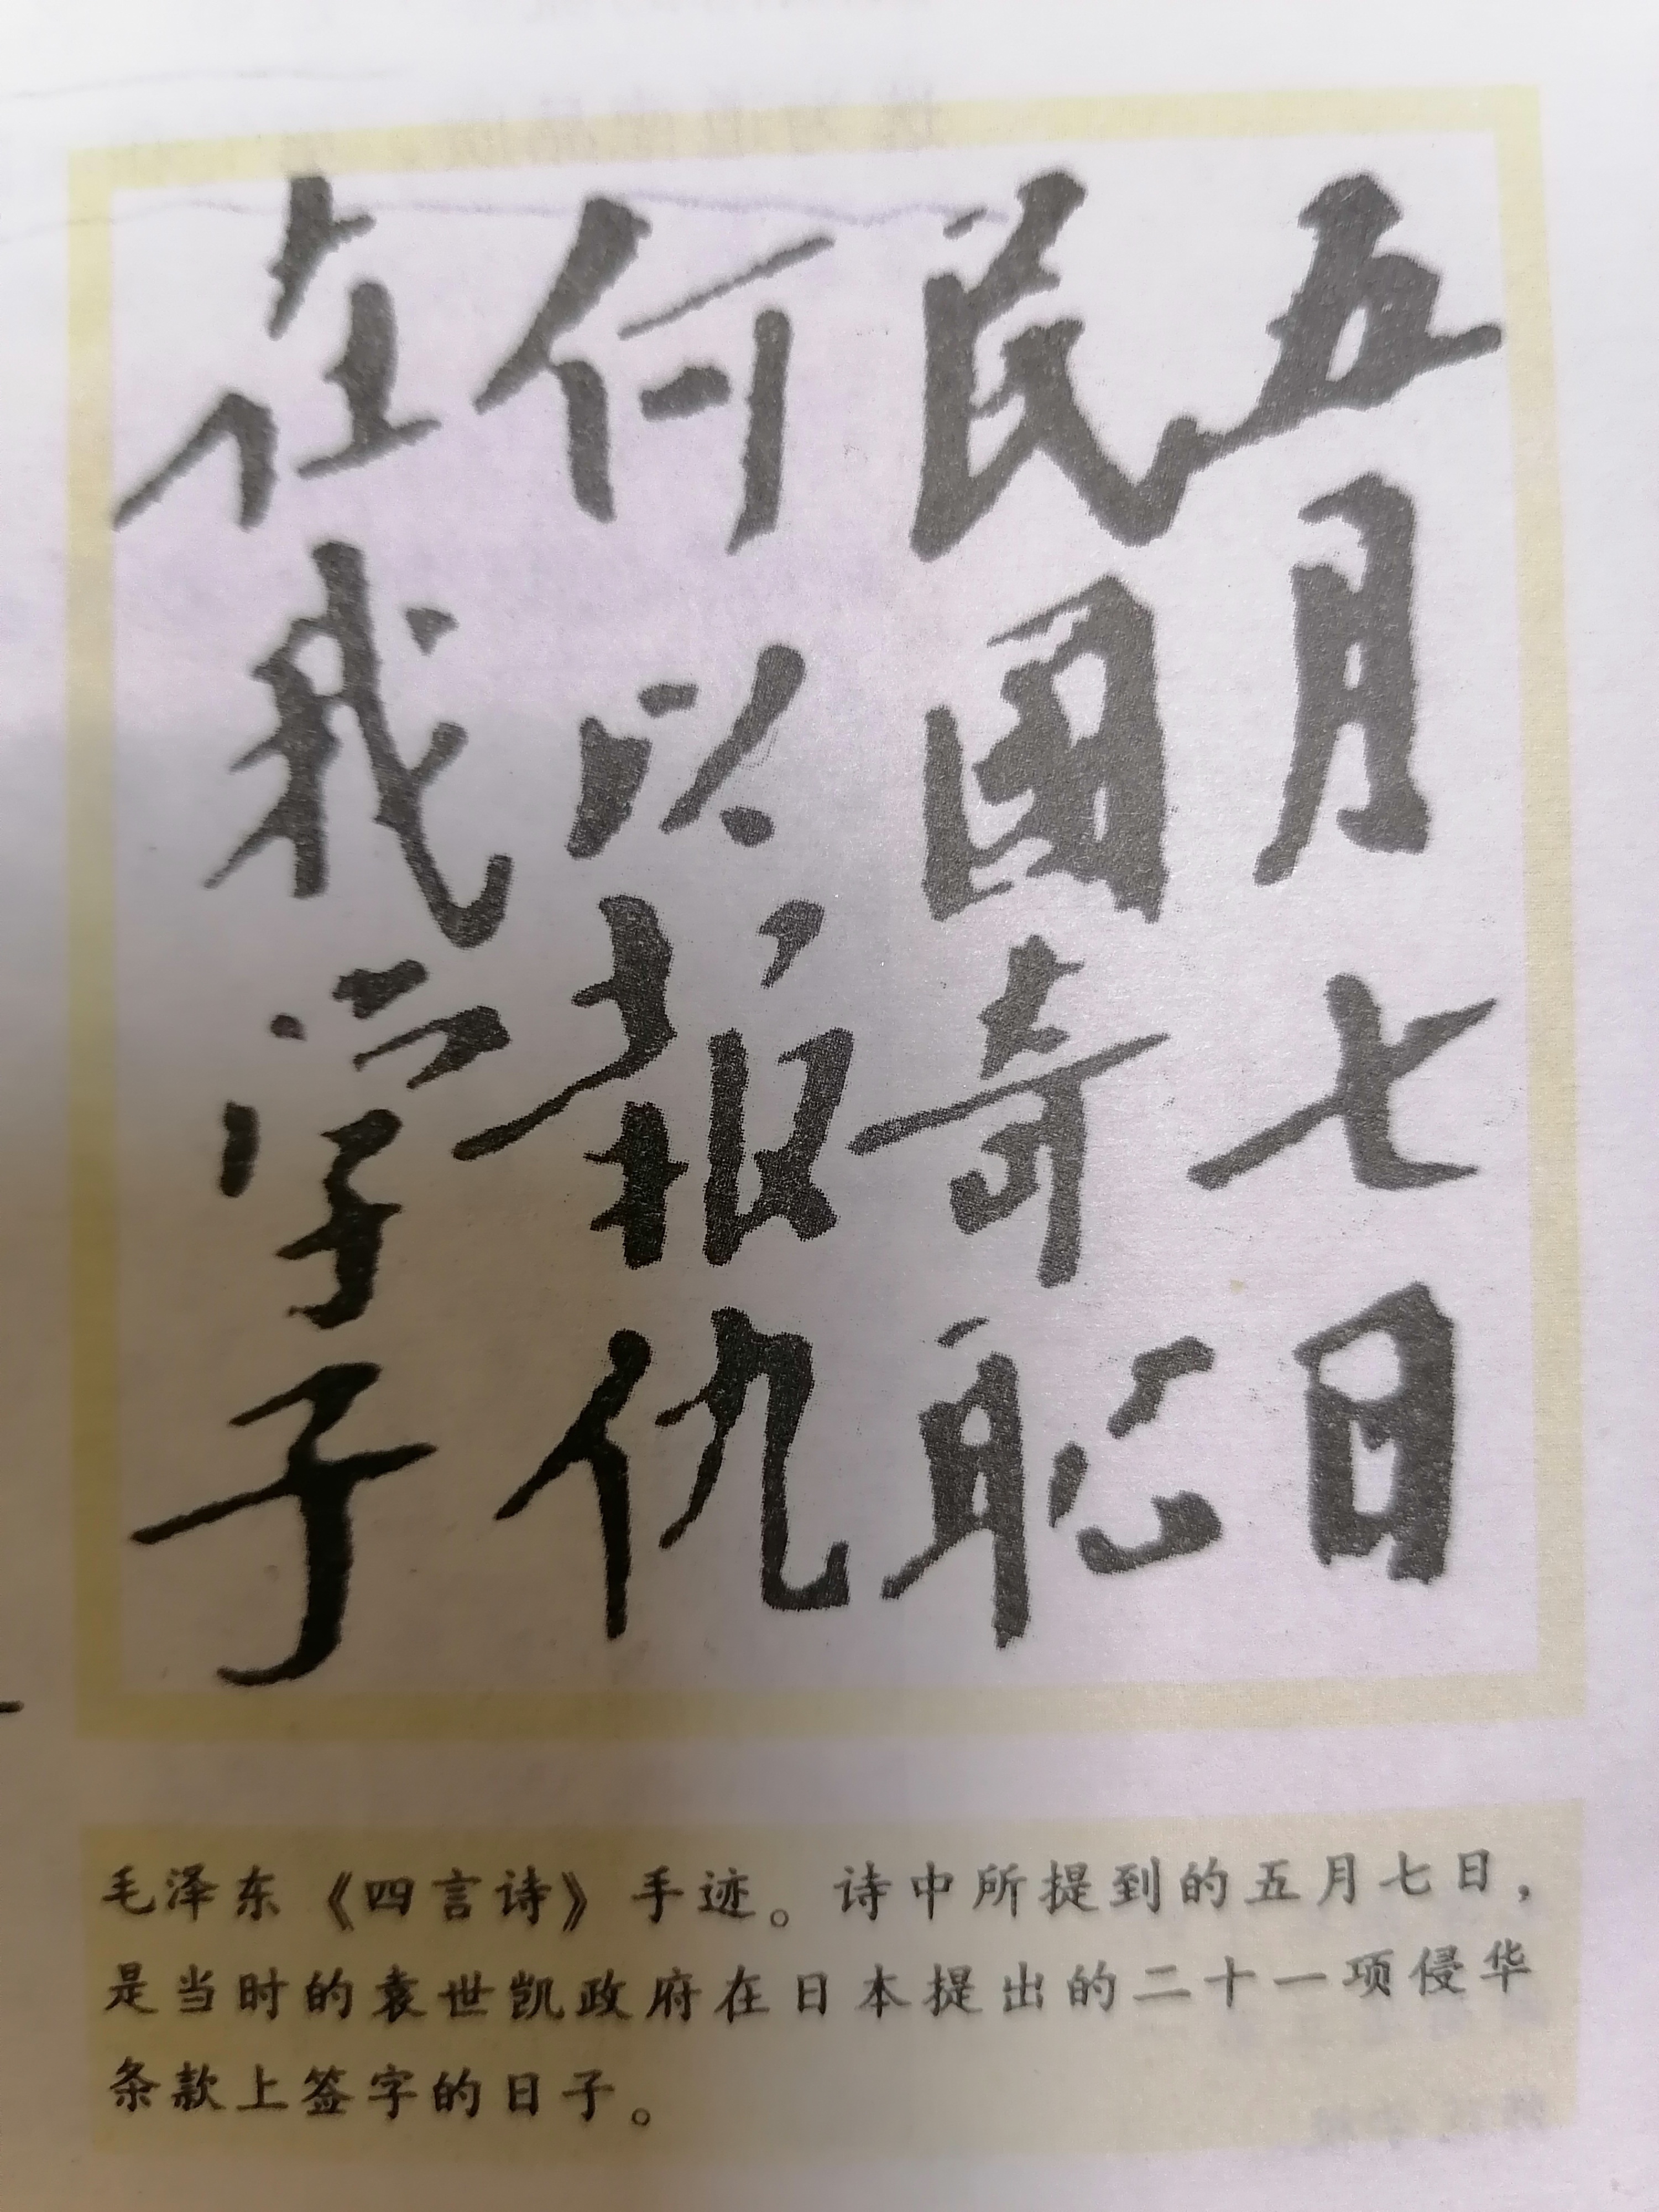 五月七日
民国奇耻
何以报仇
在我学子
毛泽东《四言诗》手迹。诗中所提到的五月七日，
是当时的袁世凯政府在日本提出的二十一项侵华
条款上签字的日子。